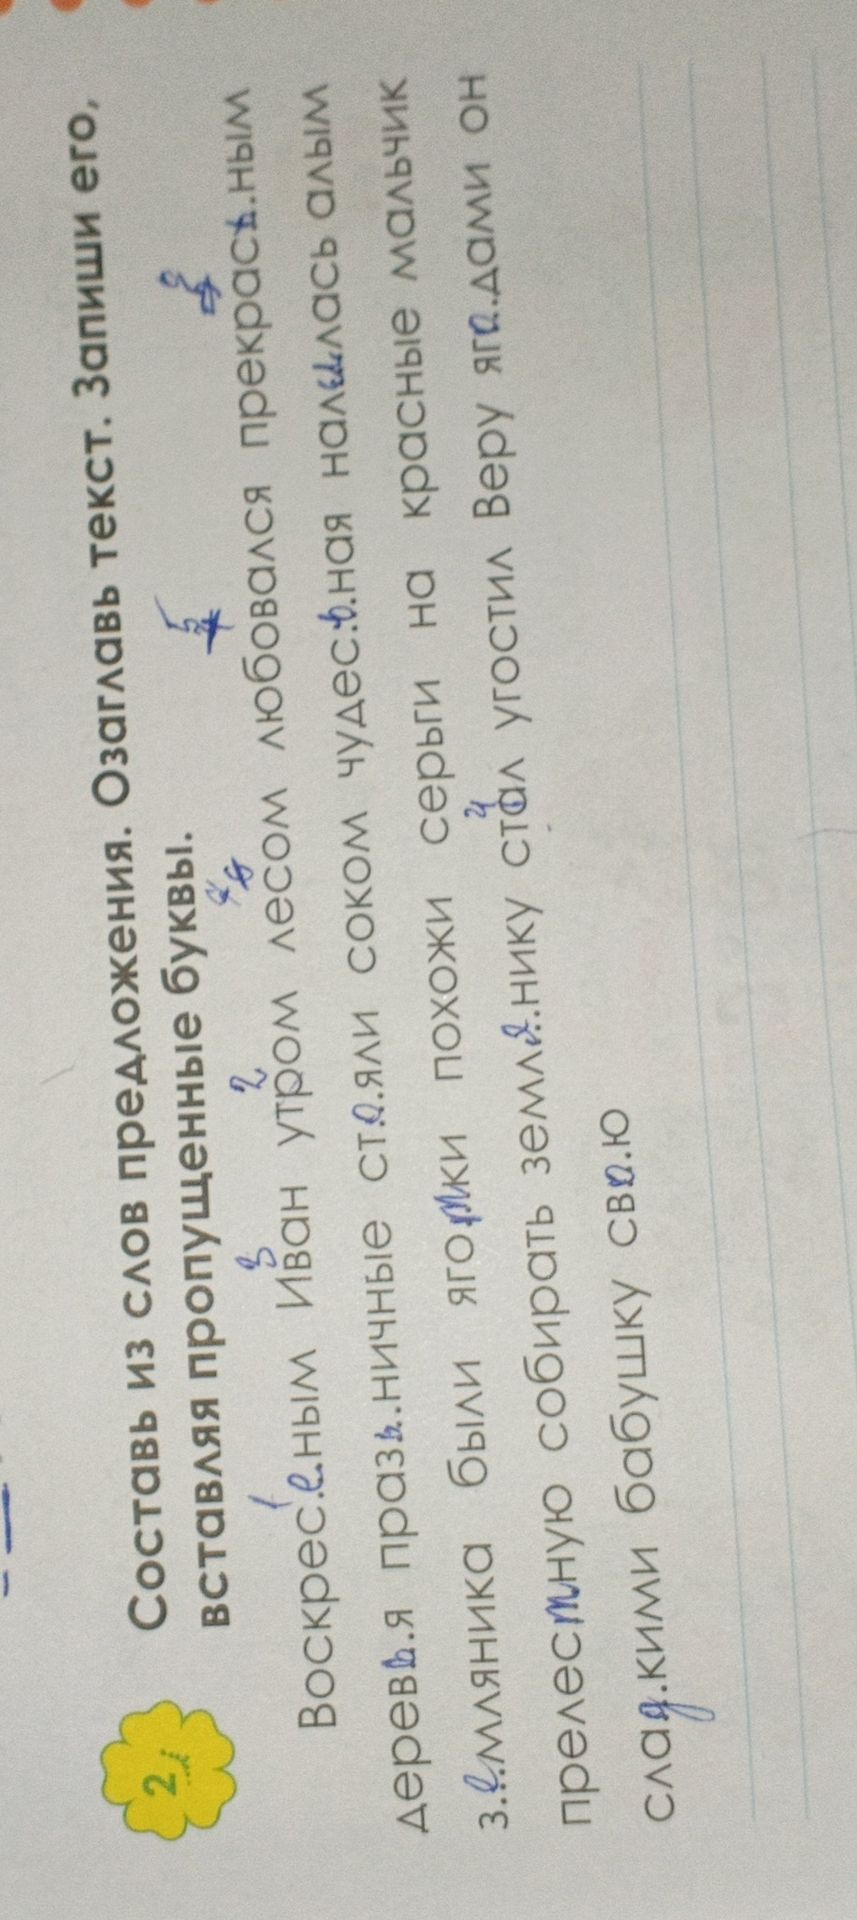 2
Составь из слов предложения. Озаглавь текст. Запиши его,
вставляя пропущенные буквы.
1 3 2 4 5
Воскрес.е.ным Иван утром лесом любовался прекрась.ным
дерев.ь.я празь..ничные ст.о.яли соком чудес.ь.ная налылась алым
з.е..мляника были яготки похожи серьги на красные мальчик
прелестную собирать земля..нику стал угостил Веру яго.дами он
слад.кими бабушку сво.ю